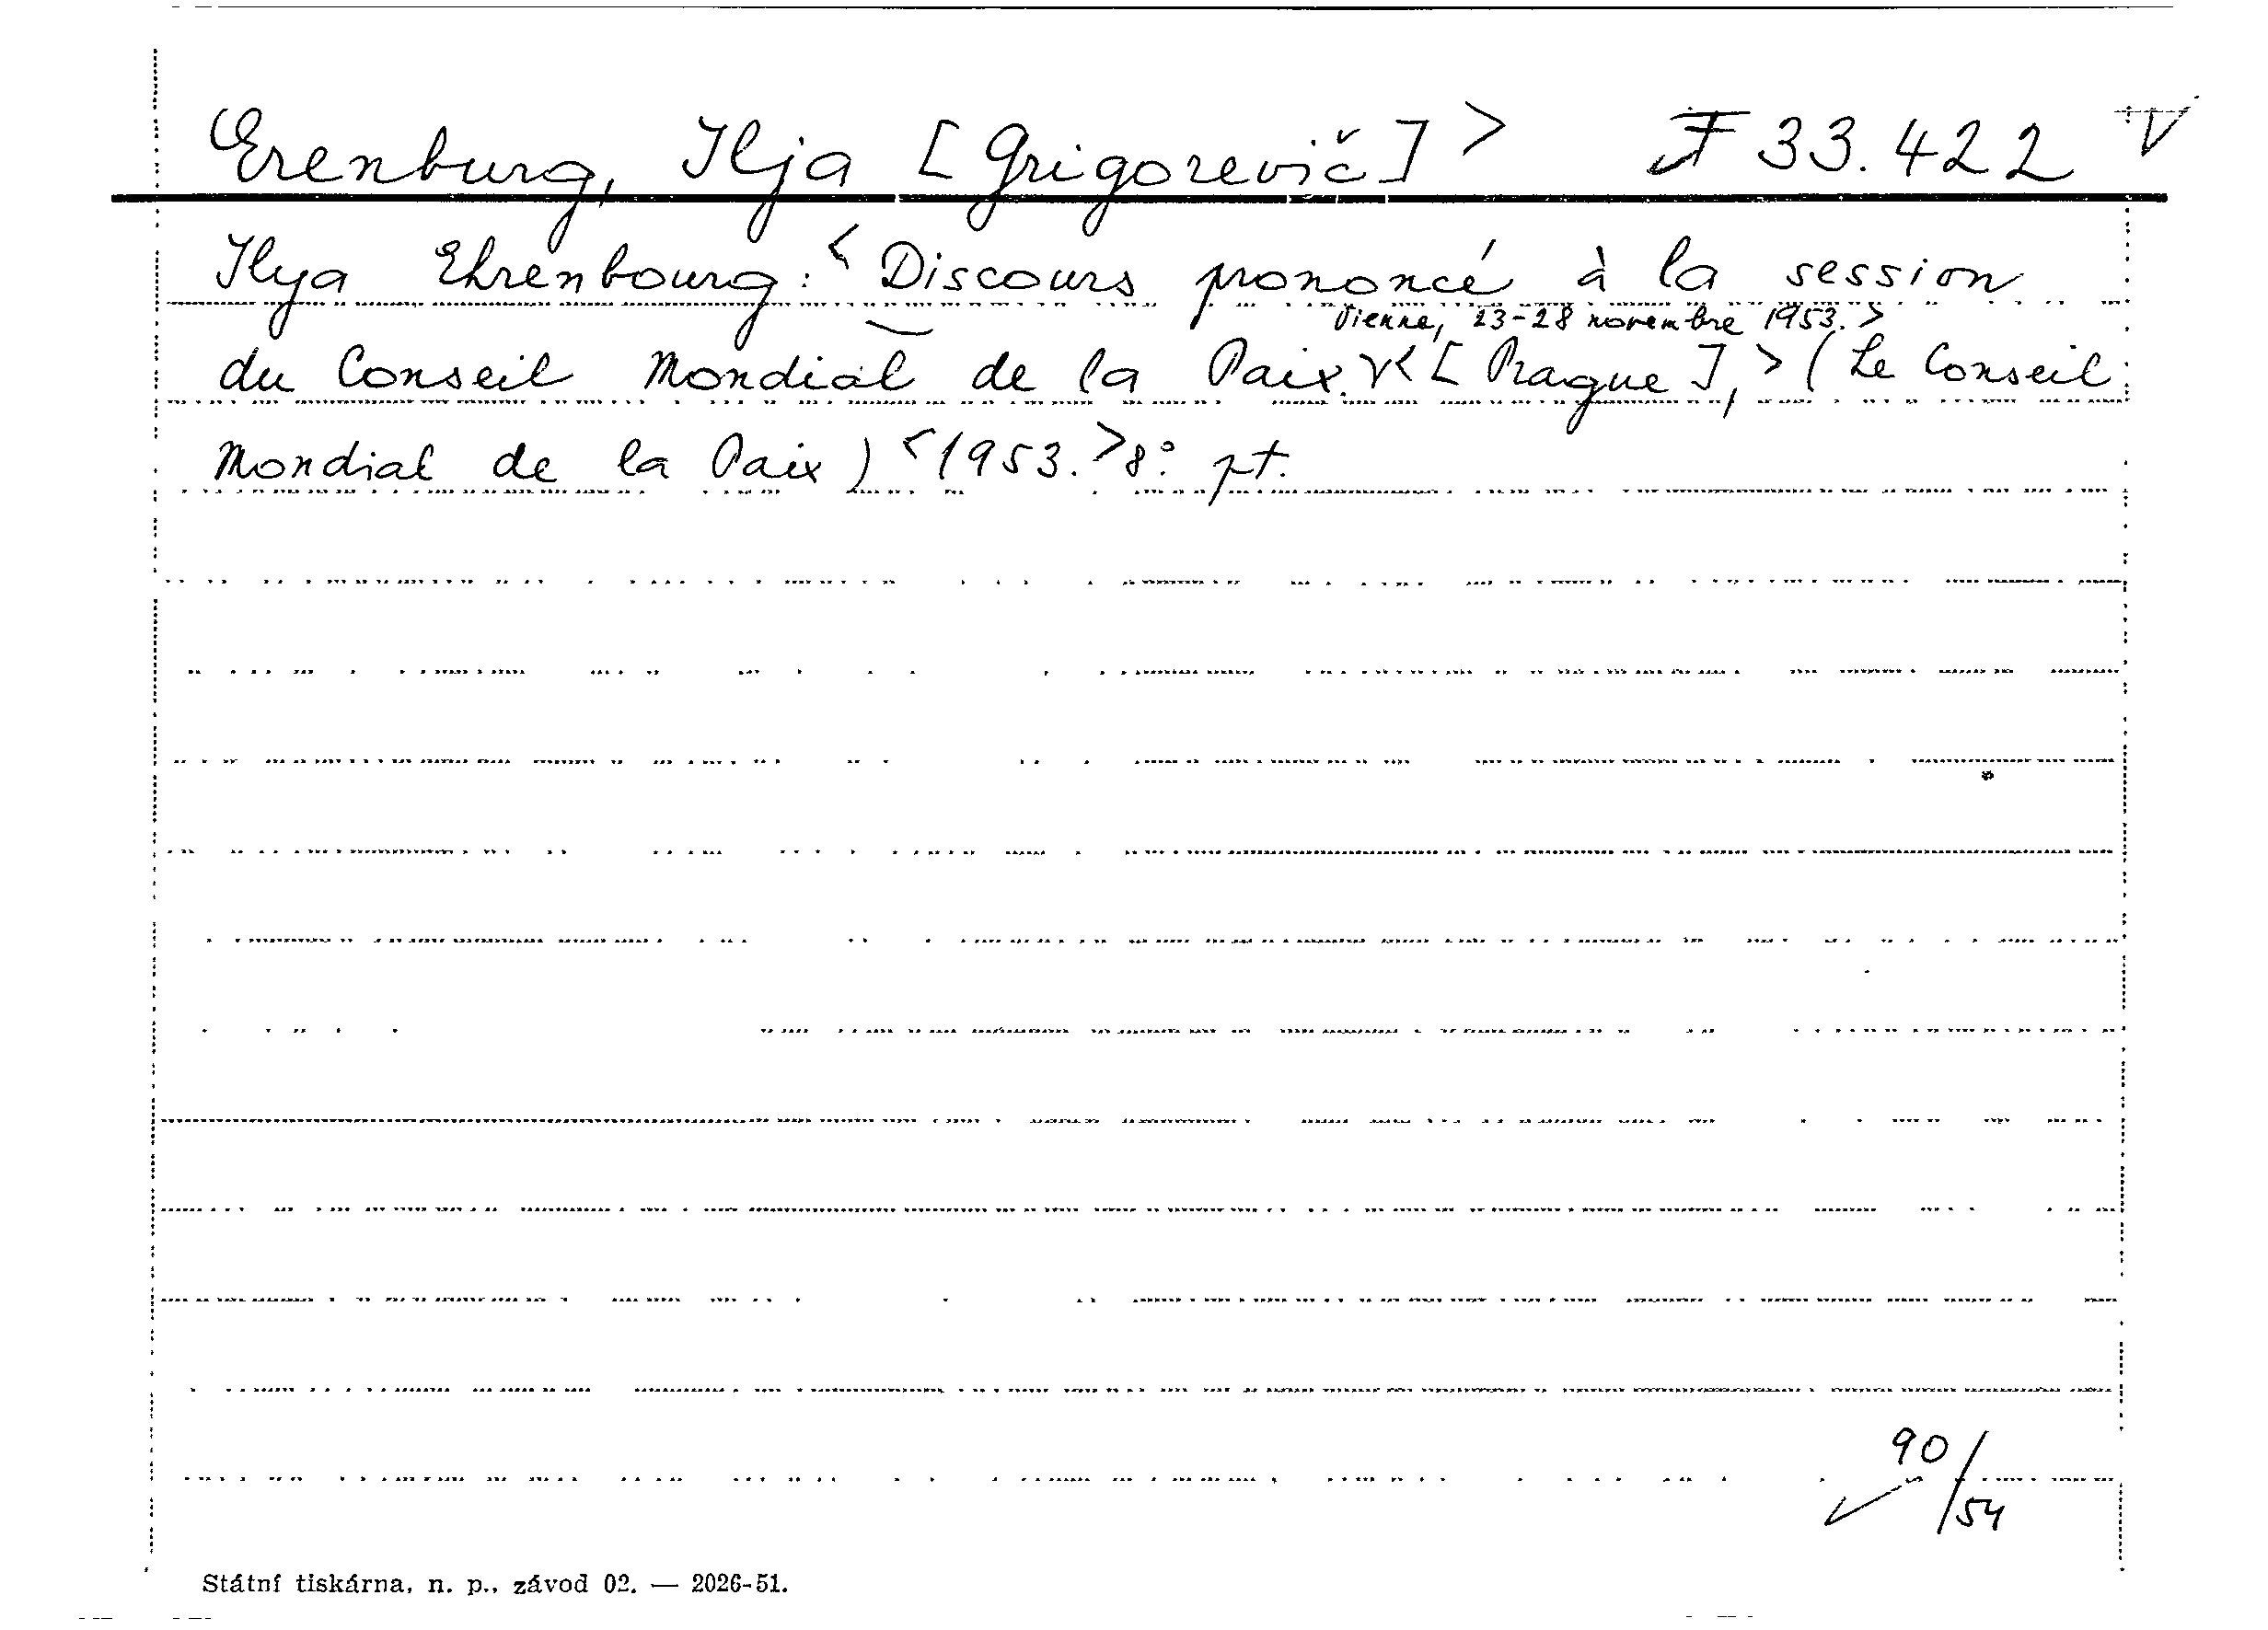 Erenburg, Ilja [Grigorevič] > F 33.422
Ilya Ehrenbourg: < Discours prononcé à la session
Vienne, 23-28 novembre 1953. >
du Conseil Mondial de la Paix. < [Prague], > (Le Conseil
Mondial de la Paix) < 1953. > 8° pt.
90/54
Státní tiskárna, n. p., závod 02. — 2026-51.